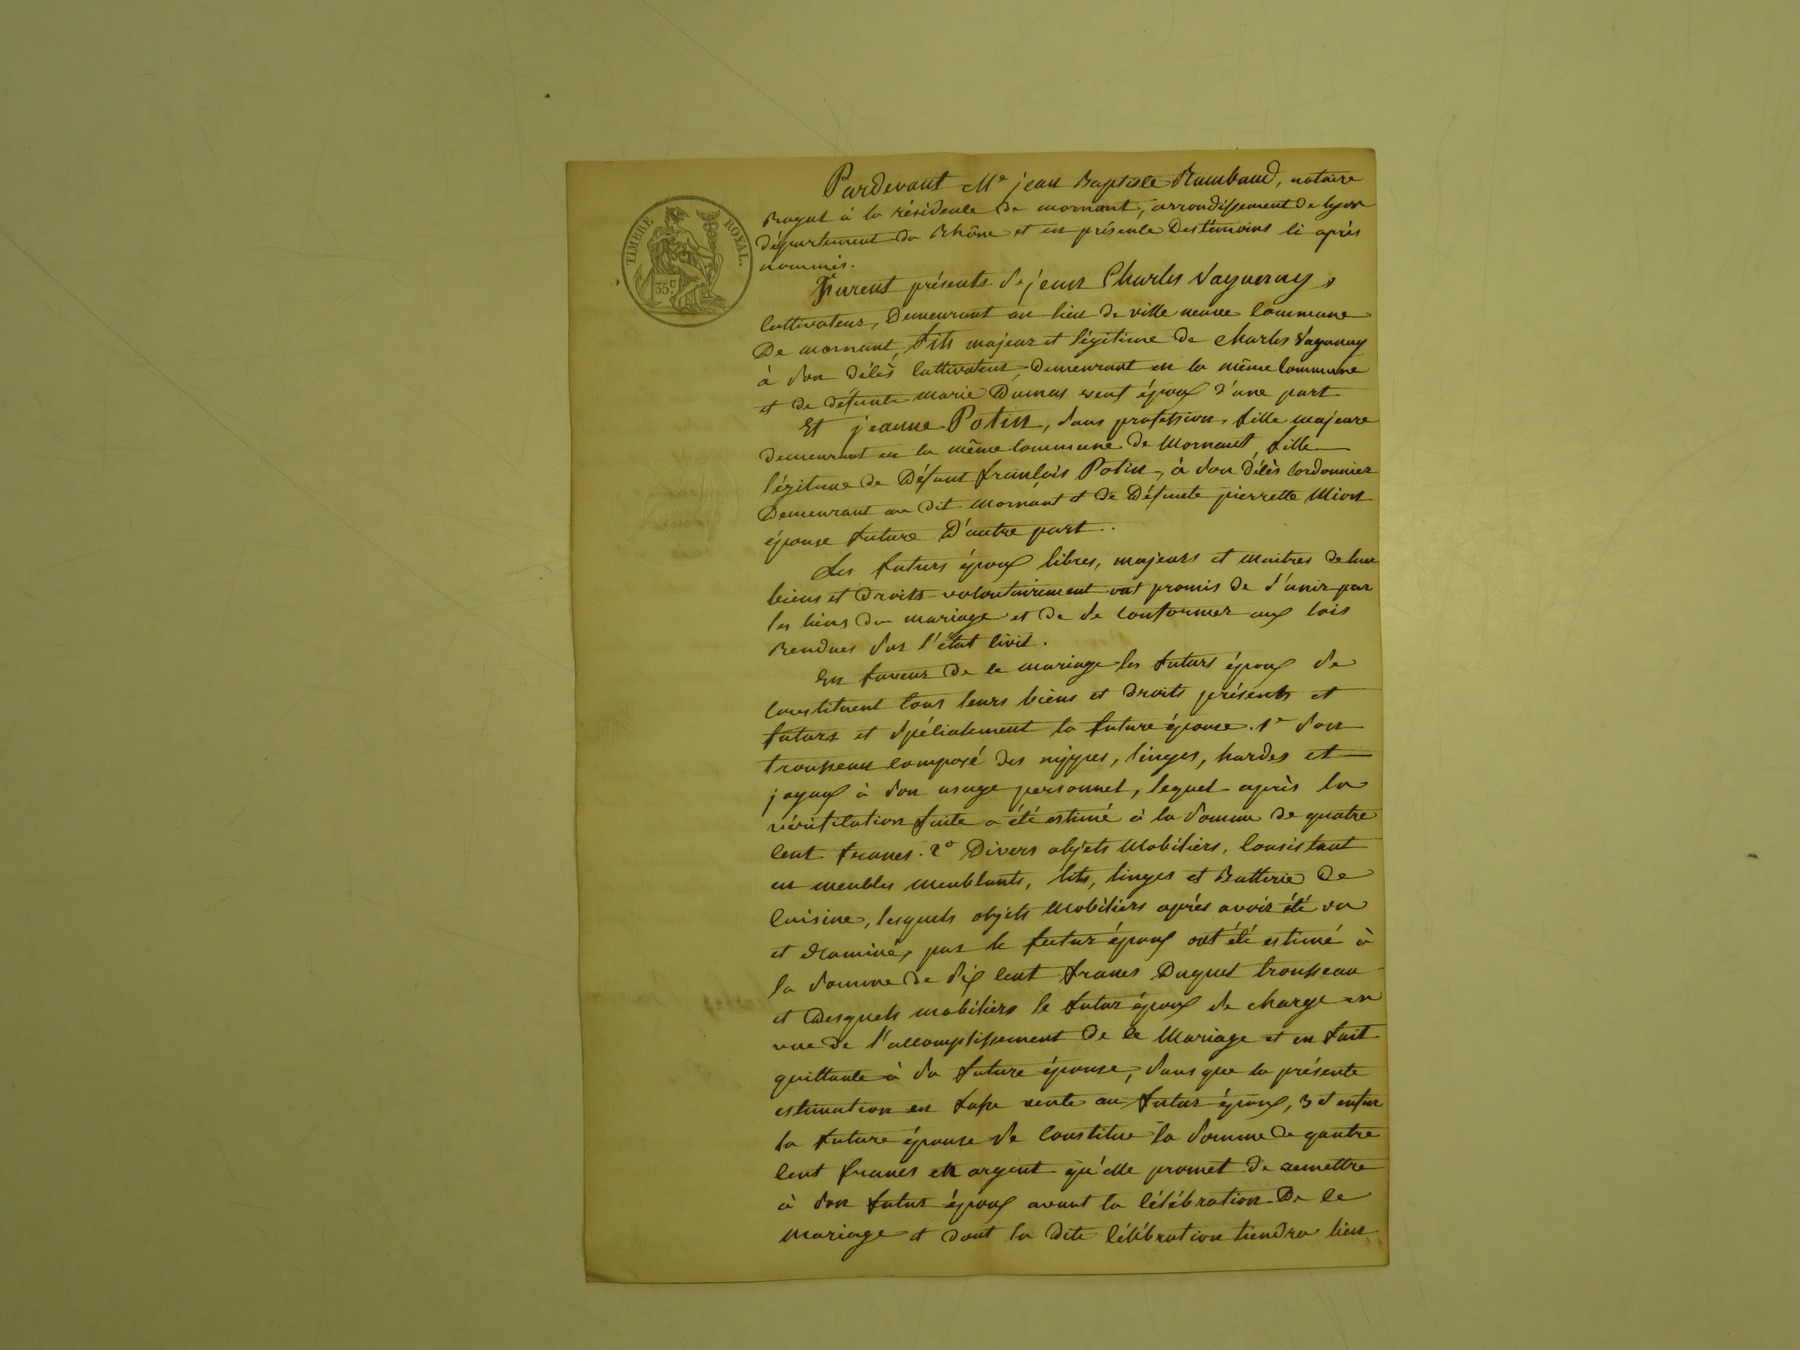 TIMBRE ROYAL.
35 c.
Pardevant Me jean Baptiste Rambaud, notaire
Royal à la résidence de mornant, arrondissement de lyon
département du Rhône et en présence des témoins ci après
nommés.
Furent présents Sr jean Charles Vaganay,
Cultivateur, Demeurant au lieu de ville neuve Commune
De mornant, fils majeur et légitime de charles Vaganay
à son décès Cultivateur Demeurant en la même Commune
et de défunte marie Dumas veuf époux d'une part
Et jeanne Potin, sans profession, fille majeure
demeurant en la même Commune de Mornant fille
légitime de Défunt françois Potin, à son décès Cordonnier
Demeurant au dit Mornant et de Défunte pierrette Mion
épouse future D'autre part..
Les futurs époux libres, majeurs et maitres de leur
biens et droits volontairement ont promis de s'unir par
les liens du mariage et de se conformer aux lois
Rendues sur l'état Civil.
En faveur de ce mariage les futurs époux se
Constituent tous leurs biens et droits présents et
futurs et spécialement la future épouse. 1o son
trousseau composé des nippes, linges, hardes et
joyaux à son usage personnel, lequel après la
vérification faite a été estimé à la somme de quatre
Cent francs. 2o Divers objets Mobiliers, Consistant
en meubles meublants, lits, linges et Batterie De
Cuisine, lesquels objets Mobiliers après avoir été vu
et examiné, par le futur époux ont été estimé à
la somme de six Cent francs Duquel trousseau
et Desquels mobiliers le futur époux se charge en
vue de l'accomplissement De ce Mariage et en fait
quittance à sa future épouse, sans que la présente
estimation en fasse vente au futur époux, 3 et enfin
la future épouse se Constitue la somme de quatre
Cent francs en argent qu'elle promet de remettre
à son futur époux avant la Célébration De ce
Mariage et dont la dite Célébration tiendra lieu